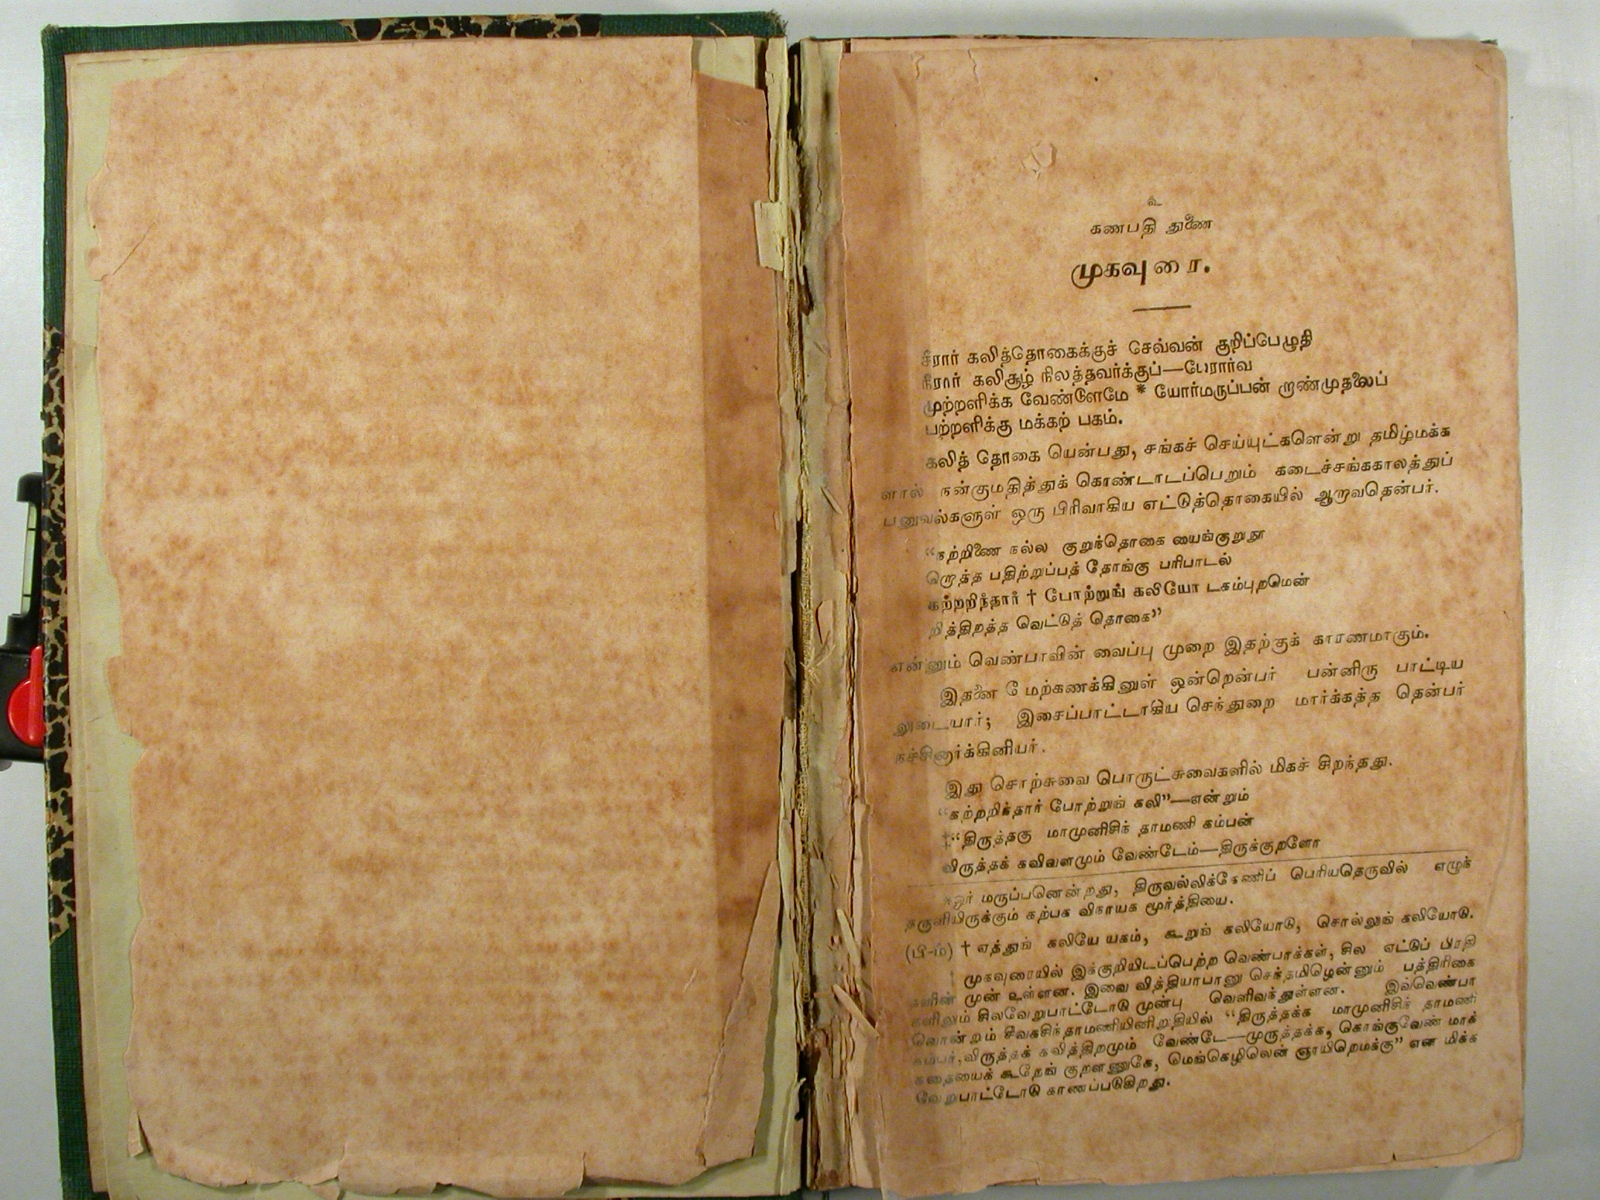 உ
கணபதி துணை
முகவுரை.
சீரார் கலித்தொகைக்குச் செவ்வன் குறிப்பெழுதி
நீரார் கலிசூழ் நிலத்தவர்க்குப்—பேரார்வ
முற்றளிக்க வேண்டுமே * யோர்மருப்பன் றாண்முதலைப்
பற்றளிக்கு மக்கற் பகம்.
கலித் தொகை யென்பது, சங்கச் செய்யுட்களென்று தமிழ்மக்க
ளால் நன்குமதித்துக் கொண்டாடப்பெறும் கடைச்சங்ககாலத்துப்
பனுவல்களுள் ஒரு பிரிவாகிய எட்டுத்தொகையில் ஆறாவதென்பர்.
“நற்றிணை நல்ல குறுந்தொகை யைங்குறுநூ
றொத்த பதிற்றுப்பத் தோங்கு பரிபாடல்
கற்றறிந்தார் † போற்றுங் கலியோ டகம்புறமென்
றித்திறத்த வெட்டுத் தொகை”
என்னும் வெண்பாவின் வைப்பு முறை இதற்குக் காரணமாகும்.
இதனை மேற்கணக்கினுள் ஒன்றென்பர் பன்னிரு பாட்டிய
லுடையார்; இசைப்பாட்டாகிய செந்துறை மார்க்கத்த தென்பர்
நச்சினார்க்கினியர்.
இது சொற்சுவை பொருட்சுவைகளில் மிகச் சிறந்தது.
“கற்றறிந்தார் போற்றுங் கலி”—என்றும்
‡“திருத்தகு மாமுனிசிந் தாமணி கம்பன்
விருத்தக் கவிவளமும் வேண்டேம்—திருக்குறளோ
*ஓர் மருப்பனென்றது, திருவல்லிக்கேணிப் பெரியதெருவில் எழுந்
தருளியிருக்கும் கற்பக விநாயக மூர்த்தியை.
(பி-ம்) † ஏத்துங் கலியே யகம், கூறுங் கலியோடு, சொல்லுங் கலியோடு.
‡ முகவுரையில் இக்குறியிடப்பெற்ற வெண்பாக்கள், சில ஏட்டுப் பிரதி
களின் முன் உள்ளன. இவை வித்தியாபாநு செந்தமிழென்னும் பத்திரிகை
களிலும் சிலவேறுபாட்டோடு முன்பு வெளிவந்துள்ளன. இவ்வெண்பா
வொன்றும் சீவகசிந்தாமணியினிறுதியில் “திருத்தக்க மாமுனிசிந் தாமணி
கம்பர், விருத்தக் கவித்திறமும் வேண்டே—முருத்தக்க, கொங்குவேண் மாக்
கதையைக் கூறேங் குறளணுகே, மெங்கெழிலென் ஞாயிறெமக்கு” என மிக்க
வேறுபாட்டோடு காணப்படுகிறது.